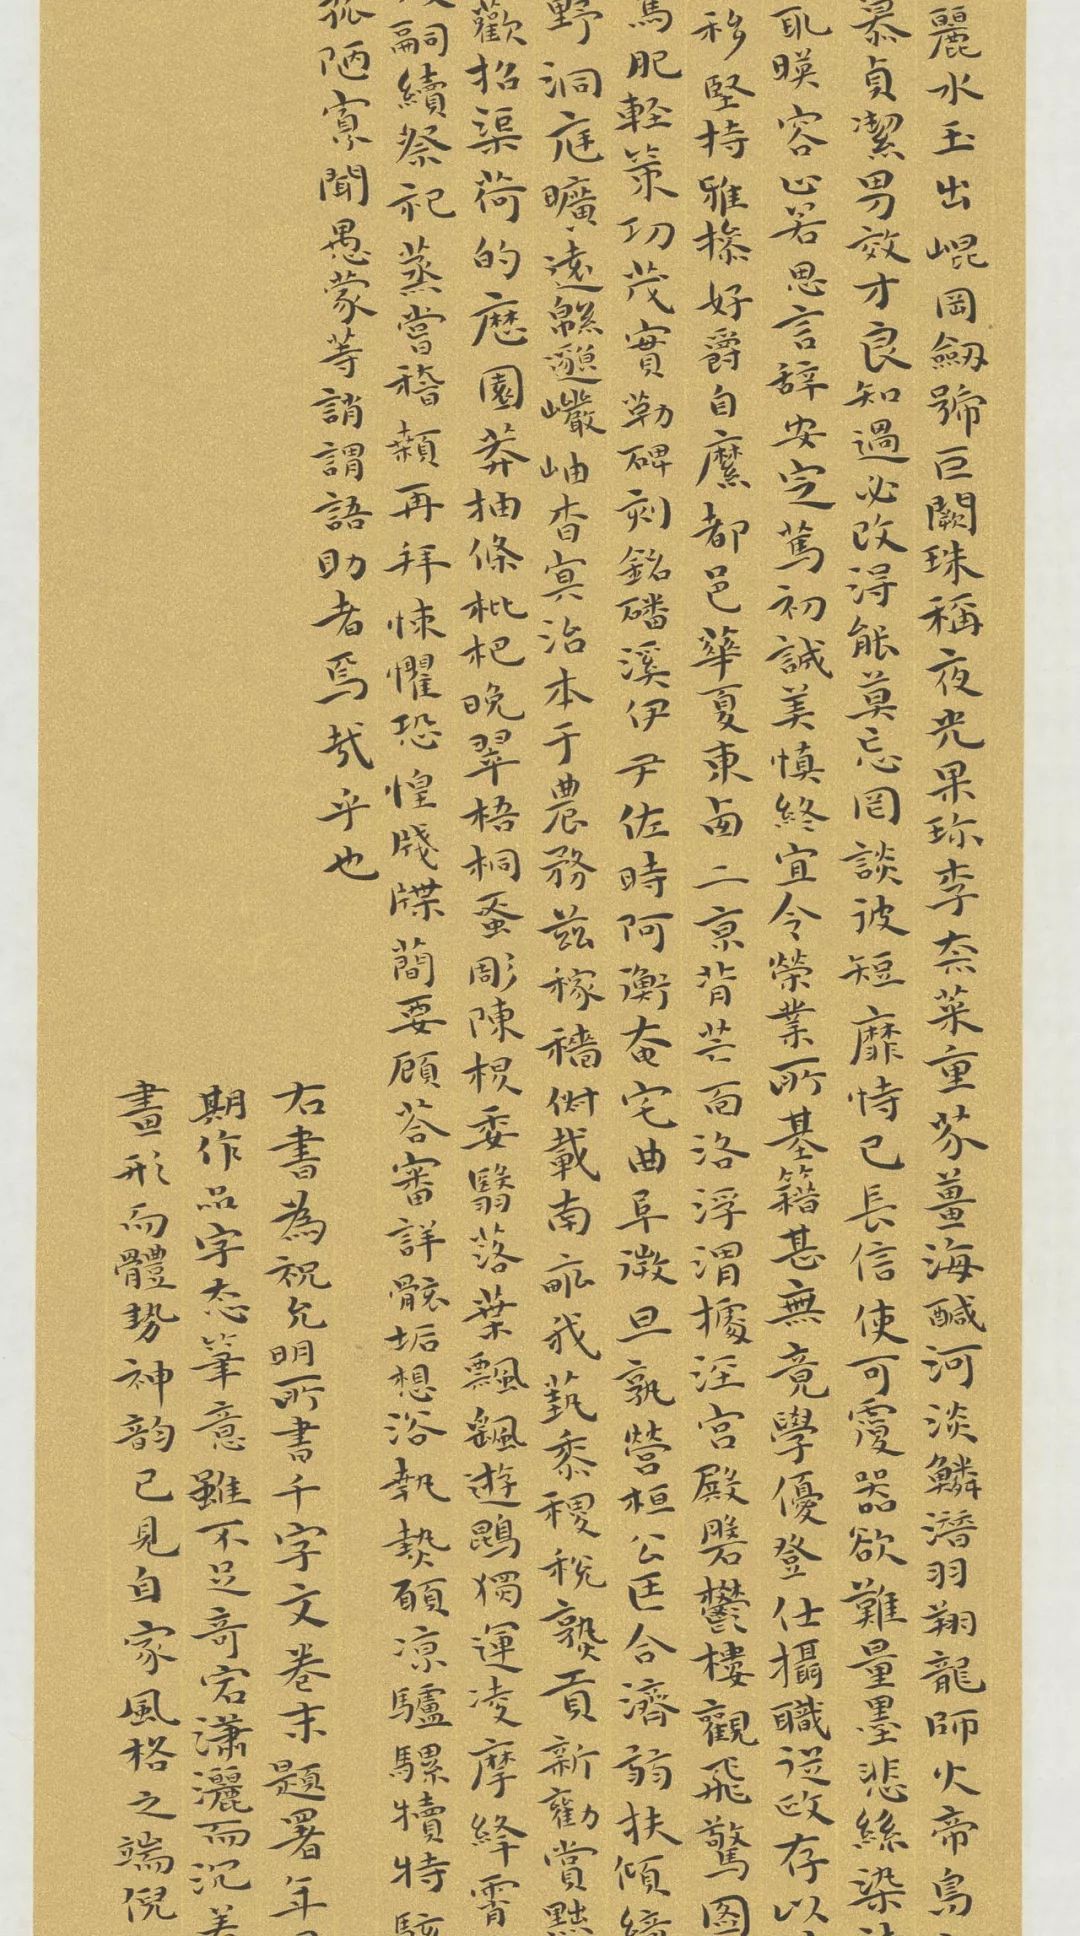 麗水玉出崐岡劔號巨闕珠稱夜光果珎李柰菜重芥薑海醎河淡鱗潛羽翔龍師火帝鳥
慕貞潔男效才良知過必改淂能莫忘罔談彼短靡恃己長信使可覆器欲難量墨悲絲染
取暎容止若思言辭安定萬初誠美慎終宜令榮業所基籍甚無竟學優登仕攝職從政存以
移堅持雅操好爵自縻都邑華夏東西二京背芒面洛浮渭據涇宮殿磐鬱樓觀飛驚图
馬肥軽策功茂實勒碑刻銘磻溪伊尹佐時阿衡奄宅曲阜微旦孰營桓公匡合濟弱扶傾綺
野洞庭曠遠緜邈巖岫杳冥治本于農務兹稼穡俶載南畝我藝黍稷稅熟貢新勸賞黜
歡招渠荷的歷園莽抽條枇杷晚翠梧桐蚤彫陳根委翳落葉飄颻遊鵾獨運凌摩絳霄
嗣續祭祀蒸嘗稽顙再拜悚懼恐惶牋牒蕳要顧荅審詳骸垢想浴執熱願涼驢騾犢特駭
孤陋寡聞愚蒙等誚謂語助者焉哉乎也
右書為祝允明所書千字文卷末題署年
期作品字态筆意雖不足奇宕瀟灑而沉
畫形而體勢神韵已見自家風格之端倪